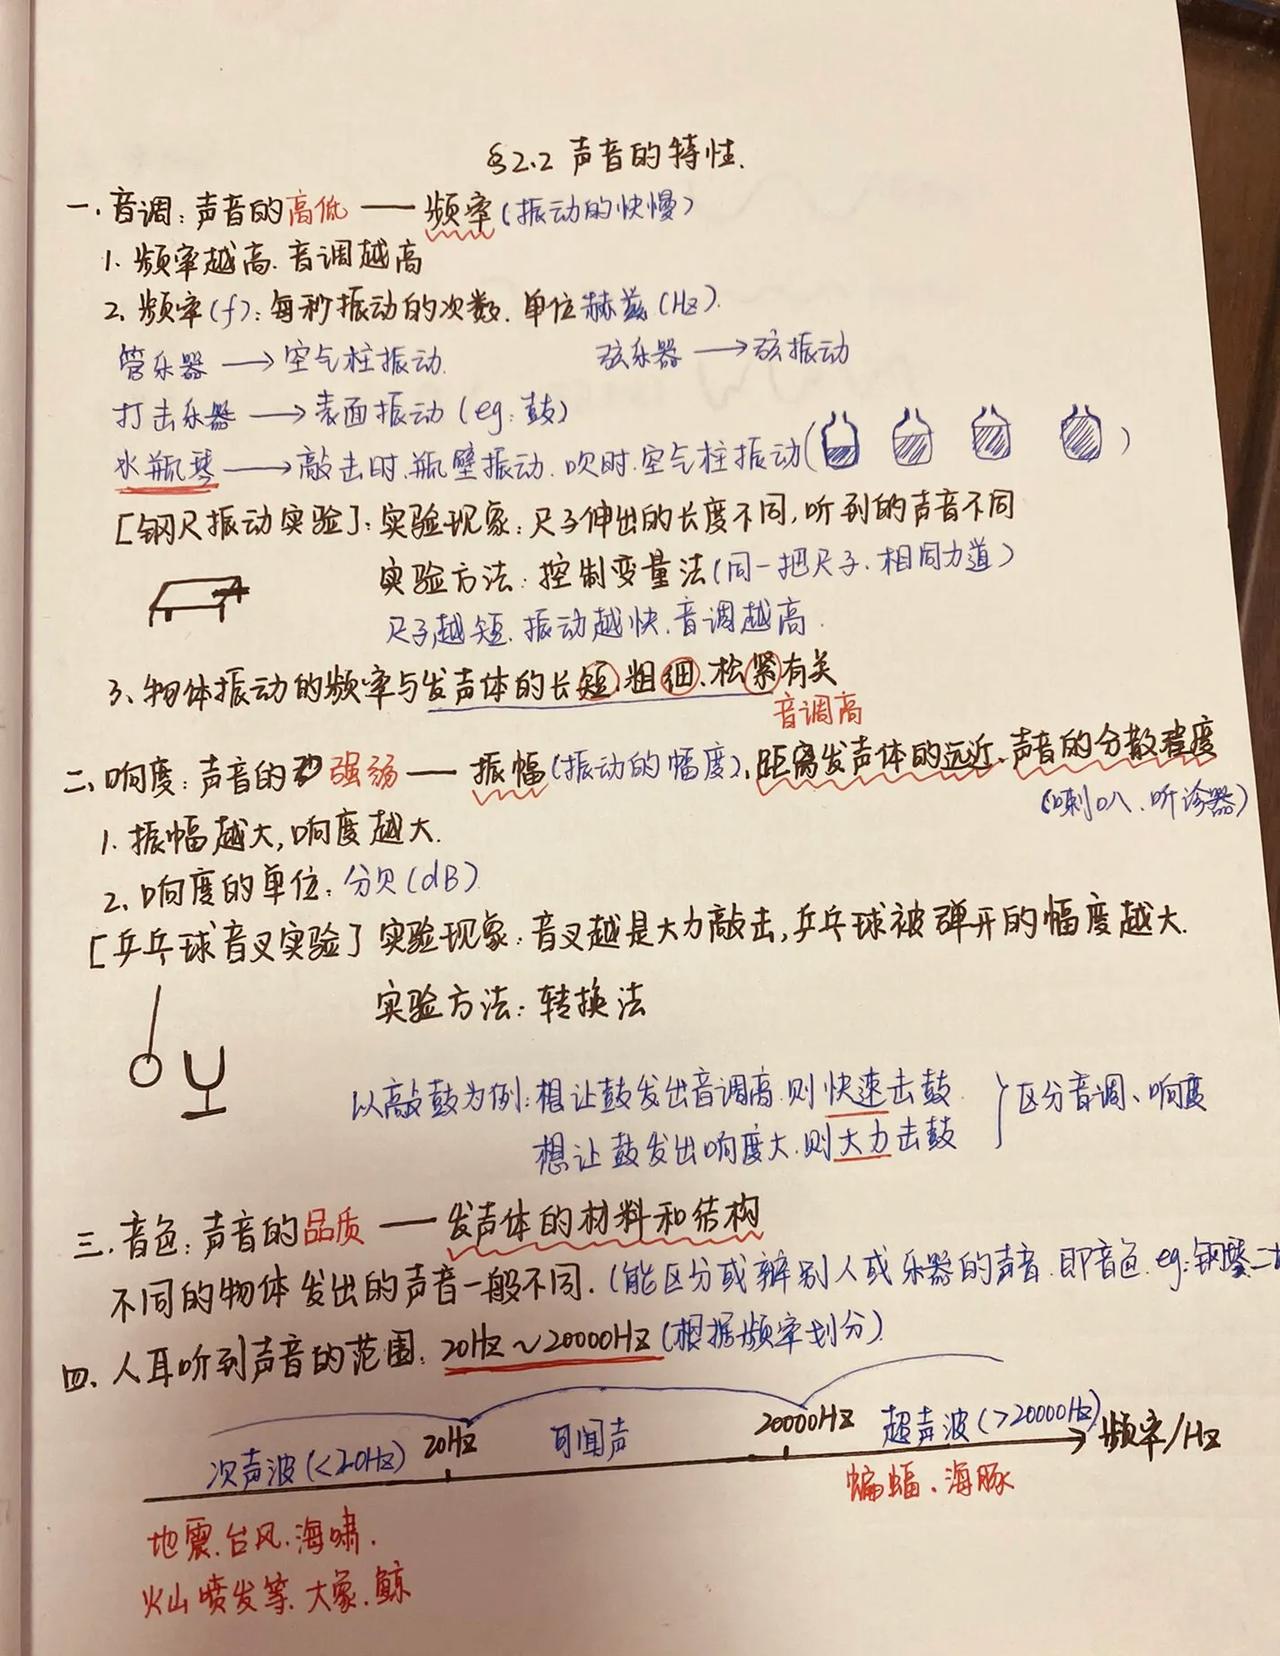 §2.2 声音的特性.
一. 音调: 声音的高低 —— 频率(振动的快慢)
1. 频率越高. 音调越高
2. 频率(f): 每秒振动的次数. 单位赫兹(Hz).
管乐器 → 空气柱振动. 弦乐器 → 弦振动
打击乐器 → 表面振动(eg: 鼓)
水瓶琴 → 敲击时.瓶壁振动. 吹时.空气柱振动( )
[钢尺振动实验]: 实验现象: 尺子伸出的长度不同, 听到的声音不同
实验方法: 控制变量法(同一把尺子. 相同力道)
尺子越短. 振动越快. 音调越高.
3. 物体振动的频率与发声体的长短.粗细、松紧有关
音调高
二. 响度: 声音的强弱 —— 振幅(振动的幅度)、距离发声体的远近、声音的分散程度
(喇叭、听诊器)
1. 振幅越大, 响度越大.
2. 响度的单位: 分贝(dB)
[乒乓球音叉实验] 实验现象: 音叉越是大力敲击, 乒乓球被弹开的幅度越大.
实验方法: 转换法
以敲鼓为例: 想让鼓发出音调高. 则快速击鼓. } 区分音调、响度
想让鼓发出响度大. 则大力击鼓
三. 音色: 声音的品质 —— 发声体的材料和结构
不同的物体发出的声音一般不同. (能区分或辨别人或乐器的声音. 即音色. eg: 钢琴二
四. 人耳听到声音的范围: 20Hz~20000Hz(根据频率划分)
次声波(<20Hz) 20Hz 可闻声 20000Hz 超声波(>20000Hz) 频率/Hz
蝙蝠、海豚
地震.台风.海啸.
火山喷发等. 大象. 鲸